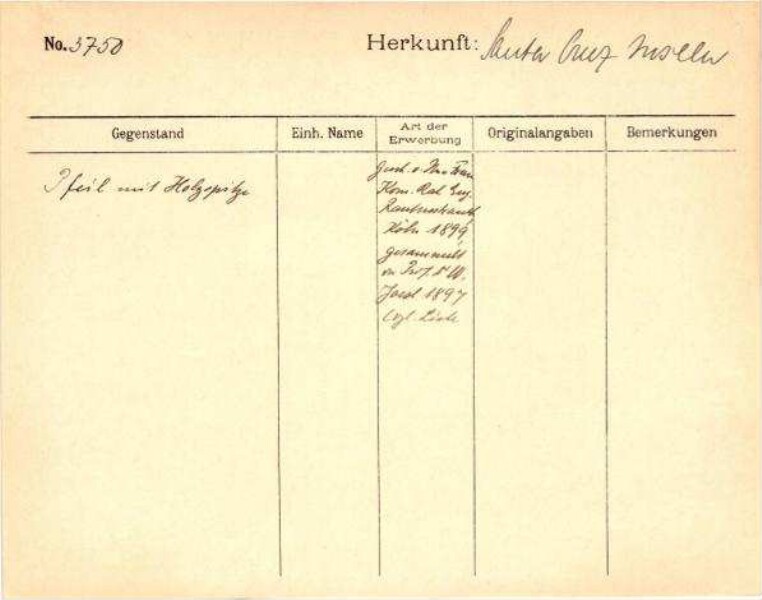 No. 3750
Herkunft: Santa Cruz Inseln
Gegenstand
Einh. Name
Art der
Erwerbung
Originalangaben
Bemerkungen
Pfeil mit Holzspitze
Gesch. v. Frau
Kom. Rat Eug.
Rautenstrauch
Köln 1899,
gesammelt
von Prof. Dr W.
Joest 1897
(vgl. Liste